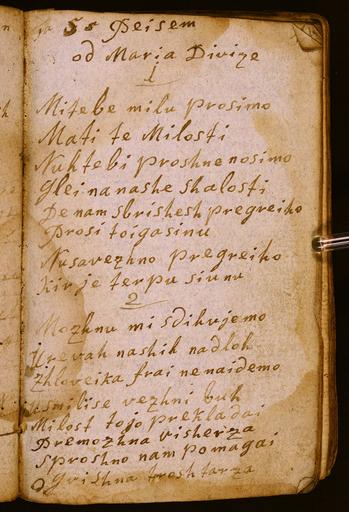 55 Peisem
od Maria Divize
1
Mi tebe milu prosimo
Mati te Milosti
Nuh tebi proshne nosimo
Glei na nashe shalosti
De nam sbrishesh pregreiho
Prosi toiga sinu
Kir je terpu
2
Mozhnu mi sdihujemo
nashih nadloh
Zhloveika frai ne naidemo
usmilise vezhni buh
Milost tojo prekladai
Premozhna visherza
sproshno nam pomagai
O Grishna troshtarza